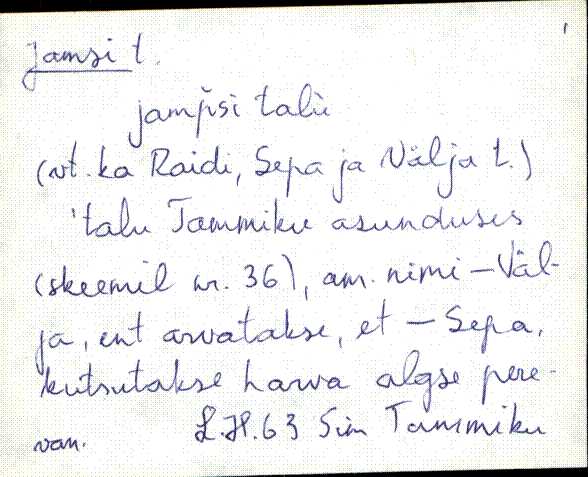 Jamsi t.
jamp̆si talù
(vt. ka Raidi, Sepa ja Välja t.)
'talu Tammiku asunduses
(skeemil nr. 36), am. nimi – Väl-
ja, ent arvatakse, et – Sepa,
kutsutakse harva algse pere-
van. L.H. 63 Sim Tammiku